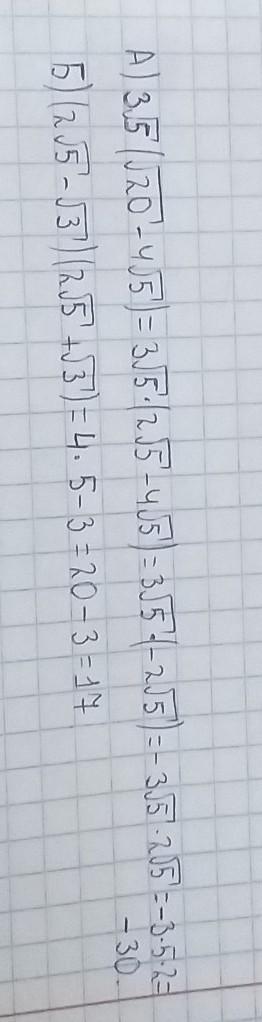 А) 3√5 (√20 - 4√5) = 3√5 · (2√5 - 4√5) = 3√5 · (-2√5) = -3√5 · 2√5 = -3·5·2=
-30
Б) (2√5 - √3)(2√5 + √3) = 4 · 5 - 3 = 20 - 3 = 17